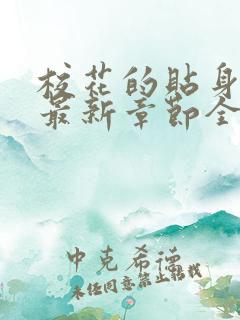 校花的贴身
最新章节全
中克希德
未经同意禁止转载